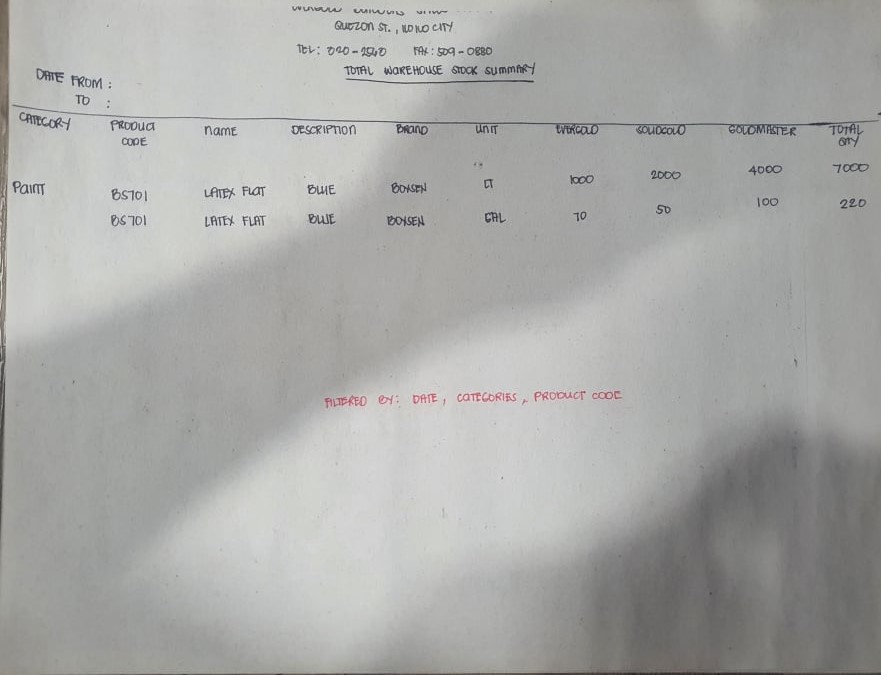 QUEZON ST., ILOILO CITY
TEL: 320-2540 FAX: 509-0880
TOTAL WAREHOUSE STOCK SUMMARY
DATE FROM :
TO :
CATEGORY PRODUCT CODE NAME DESCRIPTION BRAND UNIT EVERGOLD SOLIDGOLD GOLDMASTER TOTAL QTY
PAINT BS701 LATEX FLAT BLUE BOYSEN LT 1000 2000 4000 7000
BS701 LATEX FLAT BLUE BOYSEN GAL 70 50 100 220
FILTERED BY: DATE, CATEGORIES, PRODUCT CODE